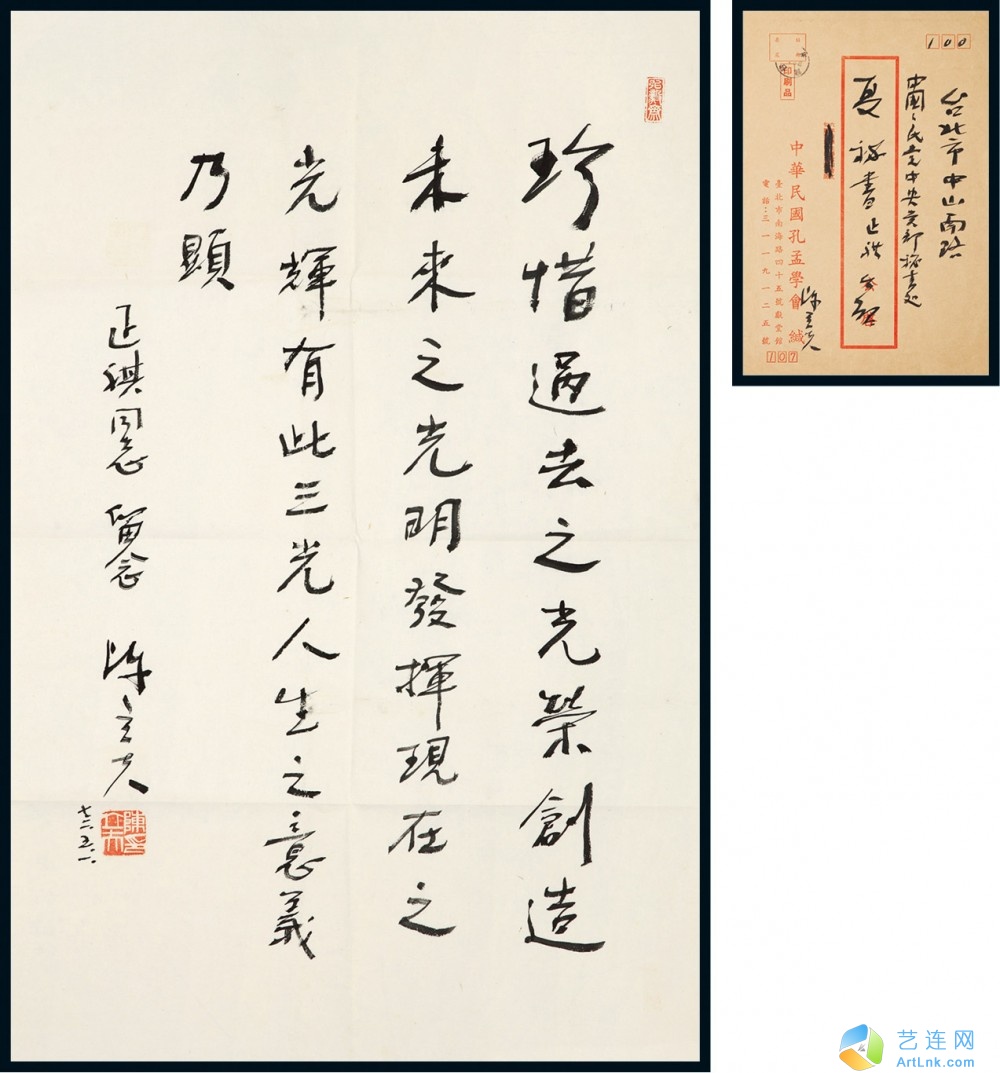 珍惜過去之光榮創造
未來之光明發揮現在之
光輝有此三光人生之意義
乃顯
正祺同志 留念
陳立夫
100
台北市中山南路
中國々民党中央党部秘書处
夏 秘書正祺 台啟
印刷品
中華民國孔孟學會 緘
陳立夫
臺北市南海路四十五號獻堂館
電話：三一一九一二五號
107
艺连网
ArtLnk.com